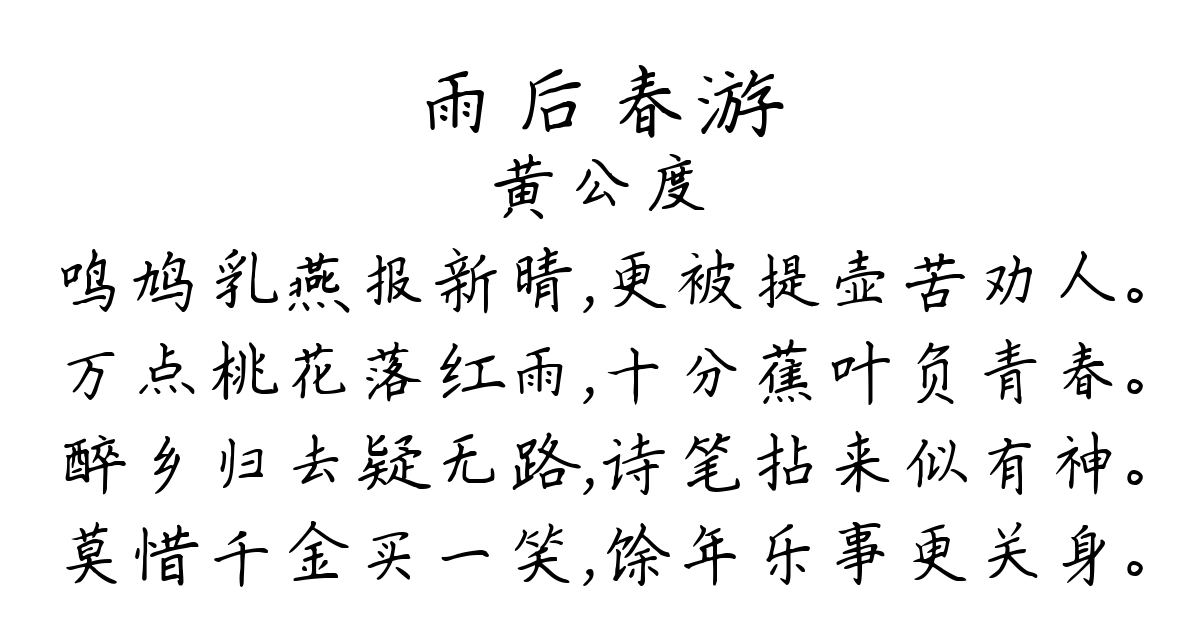 雨后春游
黄公度
鸣鸠乳燕报新晴,更被提壶苦劝人。
万点桃花落红雨,十分蕉叶负青春。
醉乡归去疑无路,诗笔拈来似有神。
莫惜千金买一笑,馀年乐事更关身。